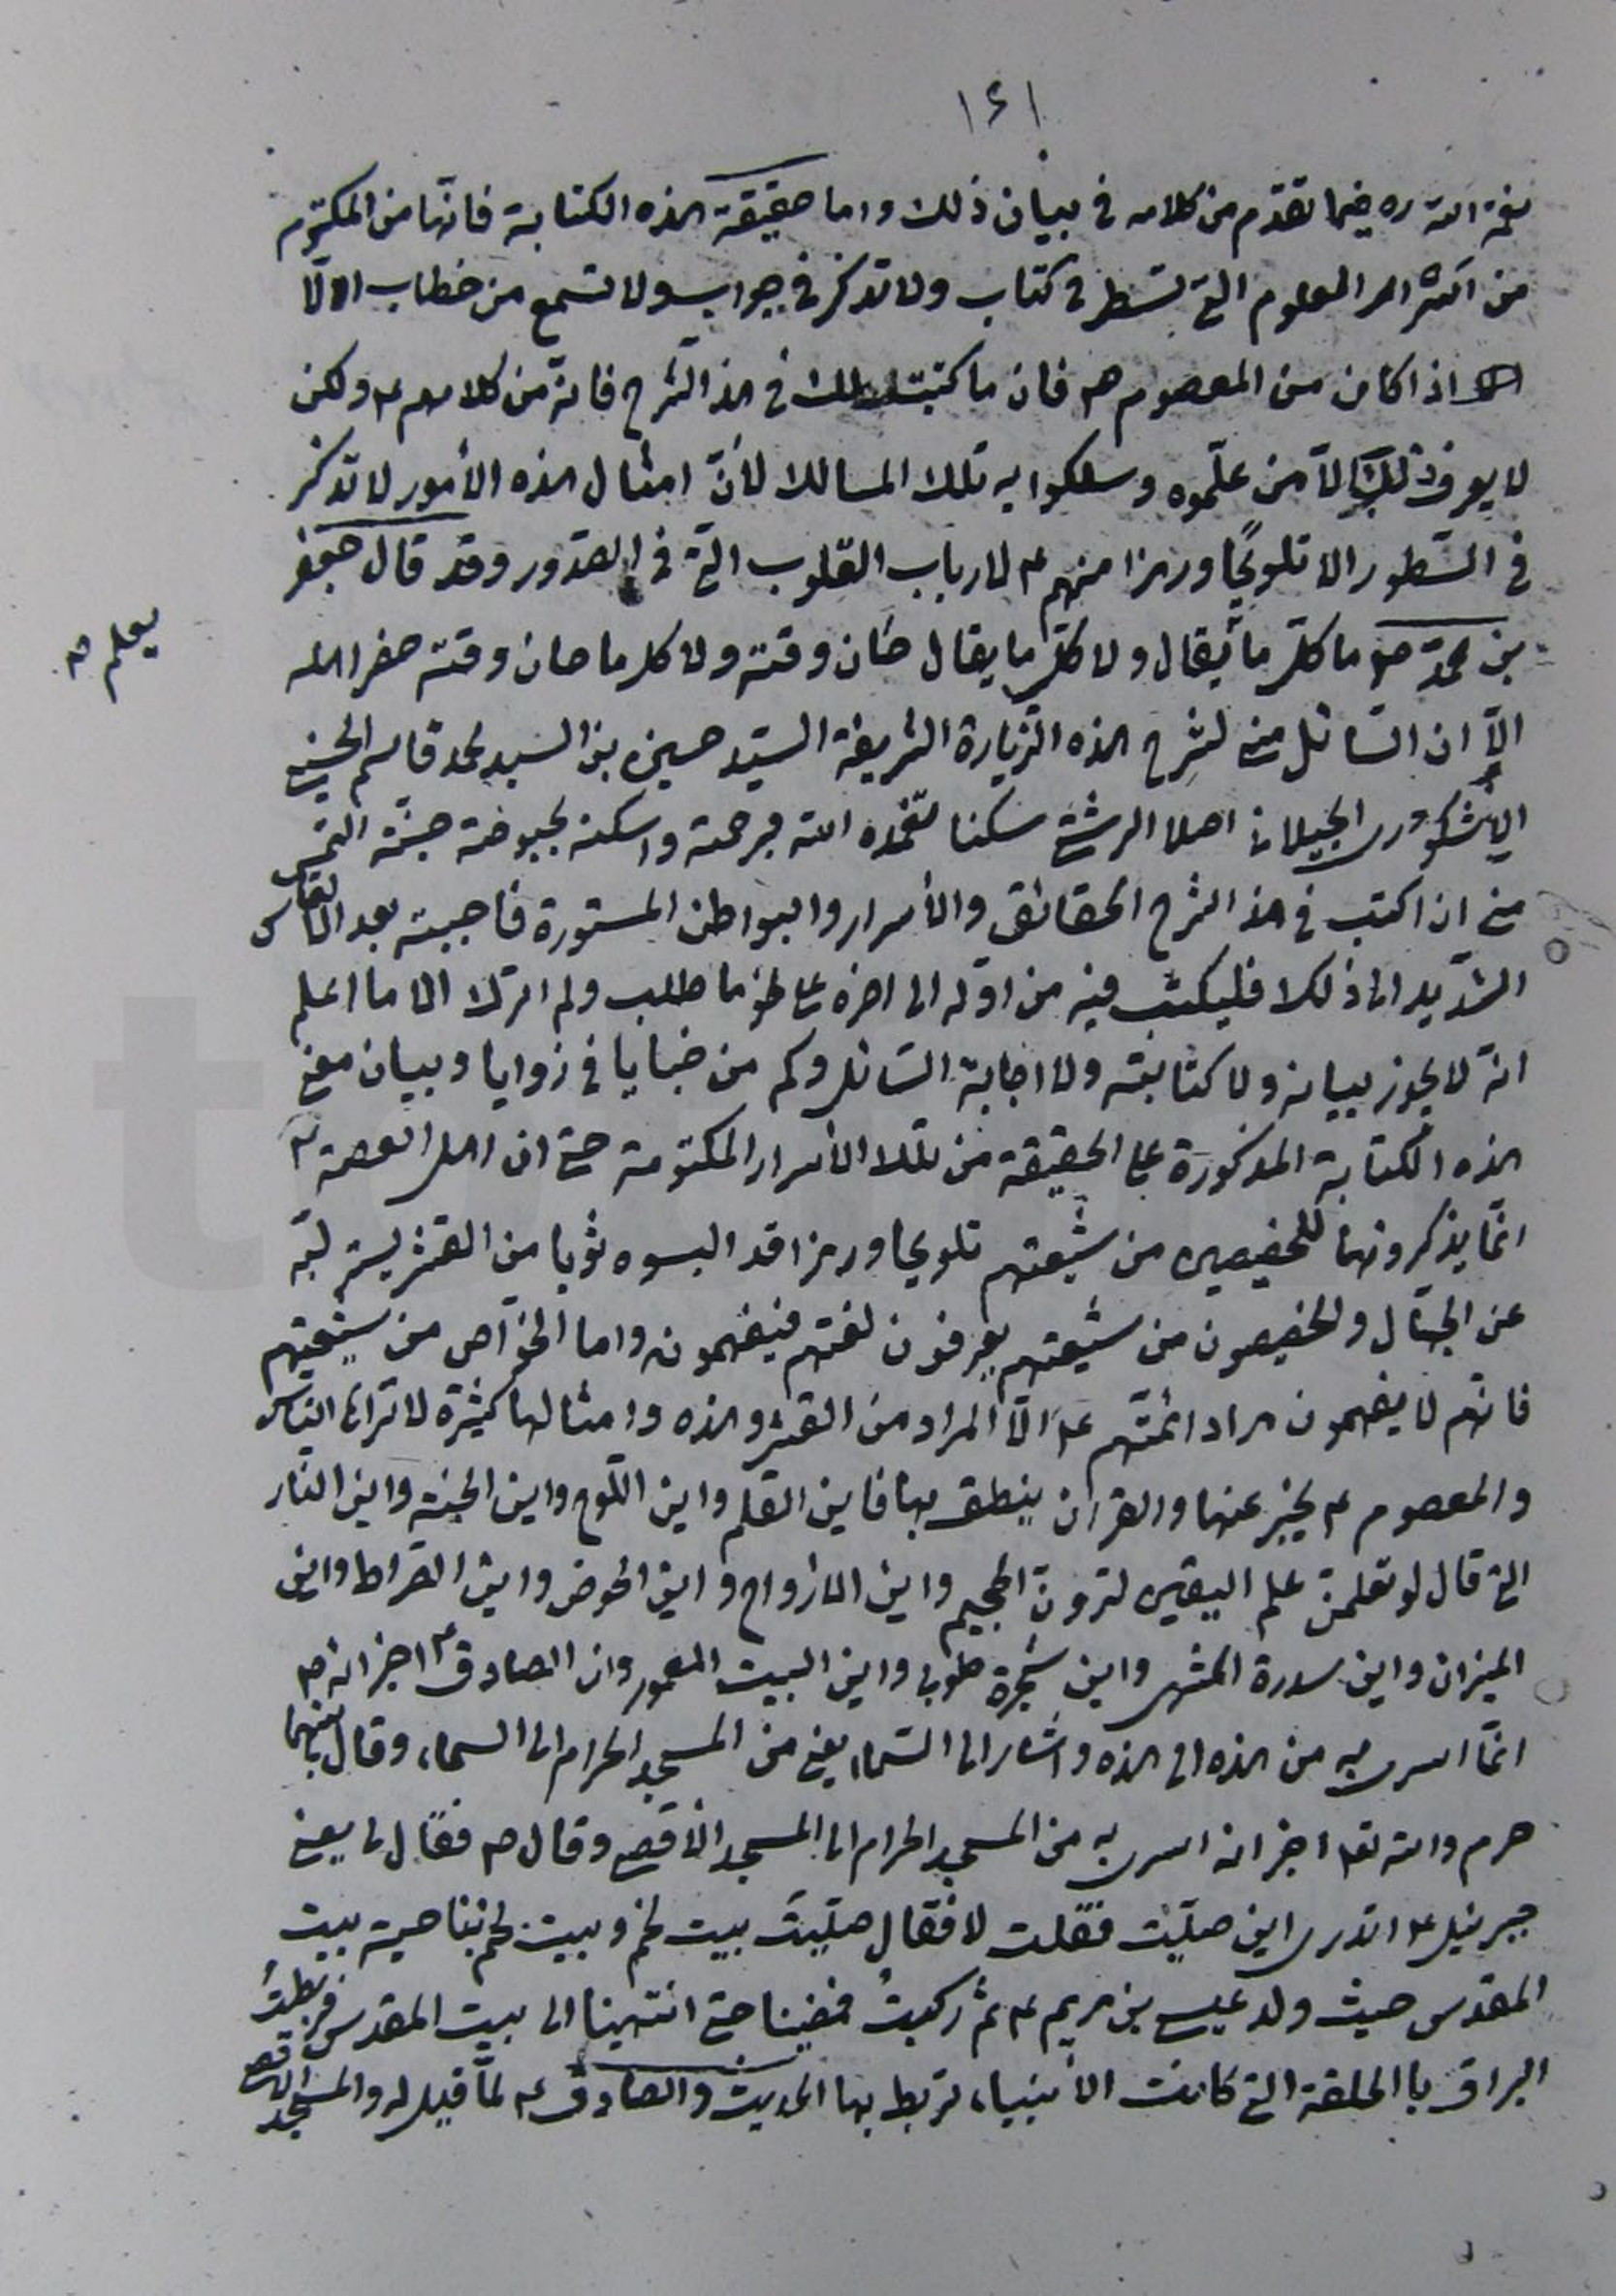 ١٤١
نعمة الله ره فيما تقدّم من كلامه في بيان ذلك واما حقيقة هذه الكتابة فانّها من المكتوم
من اكثر امر المعلوم التي تسطر في كتاب ولا تذكر في جواب ولا تسمع من خطاب الّا
اذا كان من المعصوم هم فان ما كتبت لك في هذا الشرح فانّه من كلامهم ع ولكن
لا يعرف ذلك الّا من علّموه وسلكوا به تلك المسالك لأنّ امثال هذه الأمور لا تذكر
في السّطور الا تلويحًا ورمزا منهم ع لارباب القلوب التي في الصّدور وقد قال جعفر
يعلم ص
بن محمّد ص ما كلّ ما يقال ولا كلّ ما يقال حان وقته ولا كل ما حان وقته حضر اهله
الّا ان السّائل منّي لشرح هذه الزّيارة الشريفة السيّد حسين بن السيد محمد قاسم الحسيني
الاشكوري الجيلاني اصلا الرشتي سكنا تغمّده الله برحمته واسكنه بحبوحة جنّته التمس
منّي ان اكتب في هذا الشرح الحقائق والأسرار والبواطن المستورة فاجبته بعد التماس
الشديد الى ذلك فليكتب فيه من اوّله الى اخره على نحو ما طلب ولم اترك الا ما اعلم
انّه لا يجوز بيانه ولا كتابته ولا اجابة السّائل وكم من خبايا في زوايا وبيان معنى
هذه الكتابة المذكورة على الحقيقة من تلك الأسرار المكتومة حتى ان اهل العصمة ع
انّما يذكرونها للخصيصين من شيعتهم تلويحا ورمزا قد البسوه ثوبا من القشر ليستر لبّه
عن الجهّال والخصيصون من شيعتهم يعرفون لغتهم فيفهمونه واما الخوّاص من شيعتهم
فانّهم لا يفهمون مراد ائمّتهم ع الّا المراد من القشر وهذه وامثالها كثيرة لا تراها الناس
والمعصوم ع يخبر عنها والقران ينطق بها فاين القلم واين اللّوح واين الجنّة واين النّار
التي قال لو تعلمون علم اليقين لترونّ الجحيم واين الازواج واين الحوض واين الصّراط واين
الميزان واين سدرة المنتهى واين شجرة طوبى واين البيت المعمور وان الصادق ع اخبر انه ص
انّما اسري به من هذه الى هذه واشار الى السّماء يعني من المسجد الحرام الى السماء وقال ما بينهما
حرم والله تعالى اخبر انه اسري به من المسجد الحرام الى المسجد الأقصى وقال ص فقال لي يعني
جبرئيل ع اتدري اين صلّيت فقلت لا فقال صلّيت ببيت لحم وبيت لحم بناحية بيت
المقدس حيث ولد عيسى بن مريم ع ثمّ ركبتُ فمضينا حتى انتهينا الى بيت المقدس فربطتُ
البراق با الحلقة التي كانت الأنبياء تربط بها الحديث والصادق ع لمّا قيل له والمسجد الاقصى